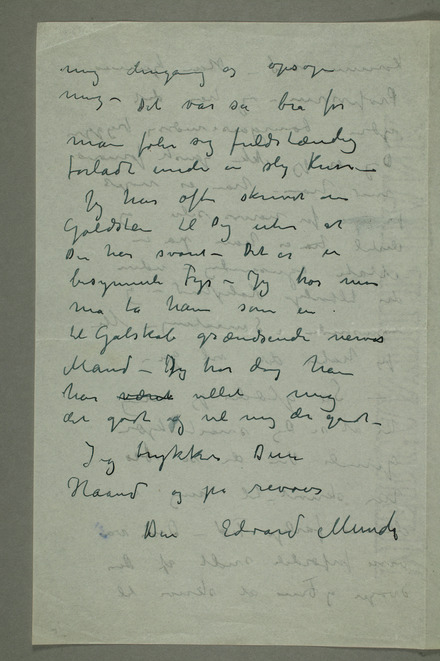 mig dengang og opsøge
mig – Det var så bra for
man føler sig fuldstændig
forladt under en slig Krise –
Jeg har ofte skrevet om
Goldstein til Dig uden at
Du har svaret – Det er en
besynderlig Fyr – Jeg tror man
må ta ham som en
til Galskab grændsende nervøs
Mand – Jeg tror dog han
har været villet mig
det godt og vil mig det godt –
Jeg trykker Din
Haand og på revoir
Din Edvard Munch